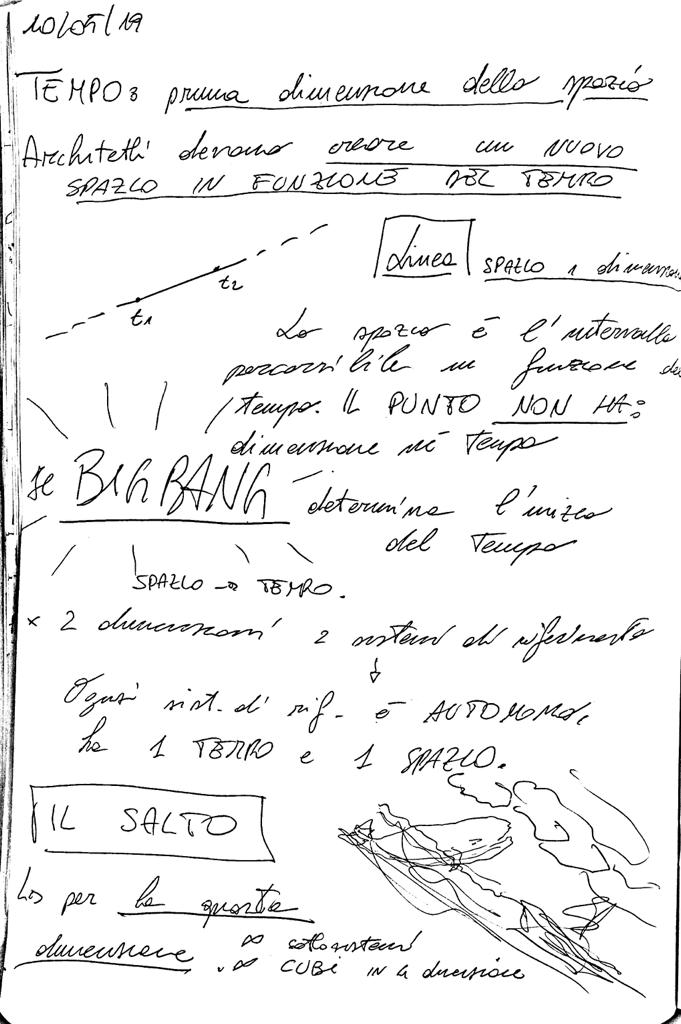 10/05/19
TEMPO: prima dimensione dello spazio
Architetti devono creare un NUOVO
SPAZIO IN FUNZIONE DEL TEMPO
t1 t2
Linea SPAZIO 1 dimensione
Lo spazio è l'intervallo
percorribile in funzione del
tempo. IL PUNTO NON HA:
dimensione nè Tempo
Il BIG BANG determina l'inizio
del Tempo
SPAZIO → TEMPO.
x 2 dimensioni 2 sistemi di riferimento
↓
Ogni sist. di rif. è AUTONOMO,
ha 1 TEMPO e 1 SPAZIO.
IL SALTO
↳ per la quarta
dimensione ∞ sottosistemi
. ∞ CUBI IN 4 dimensione